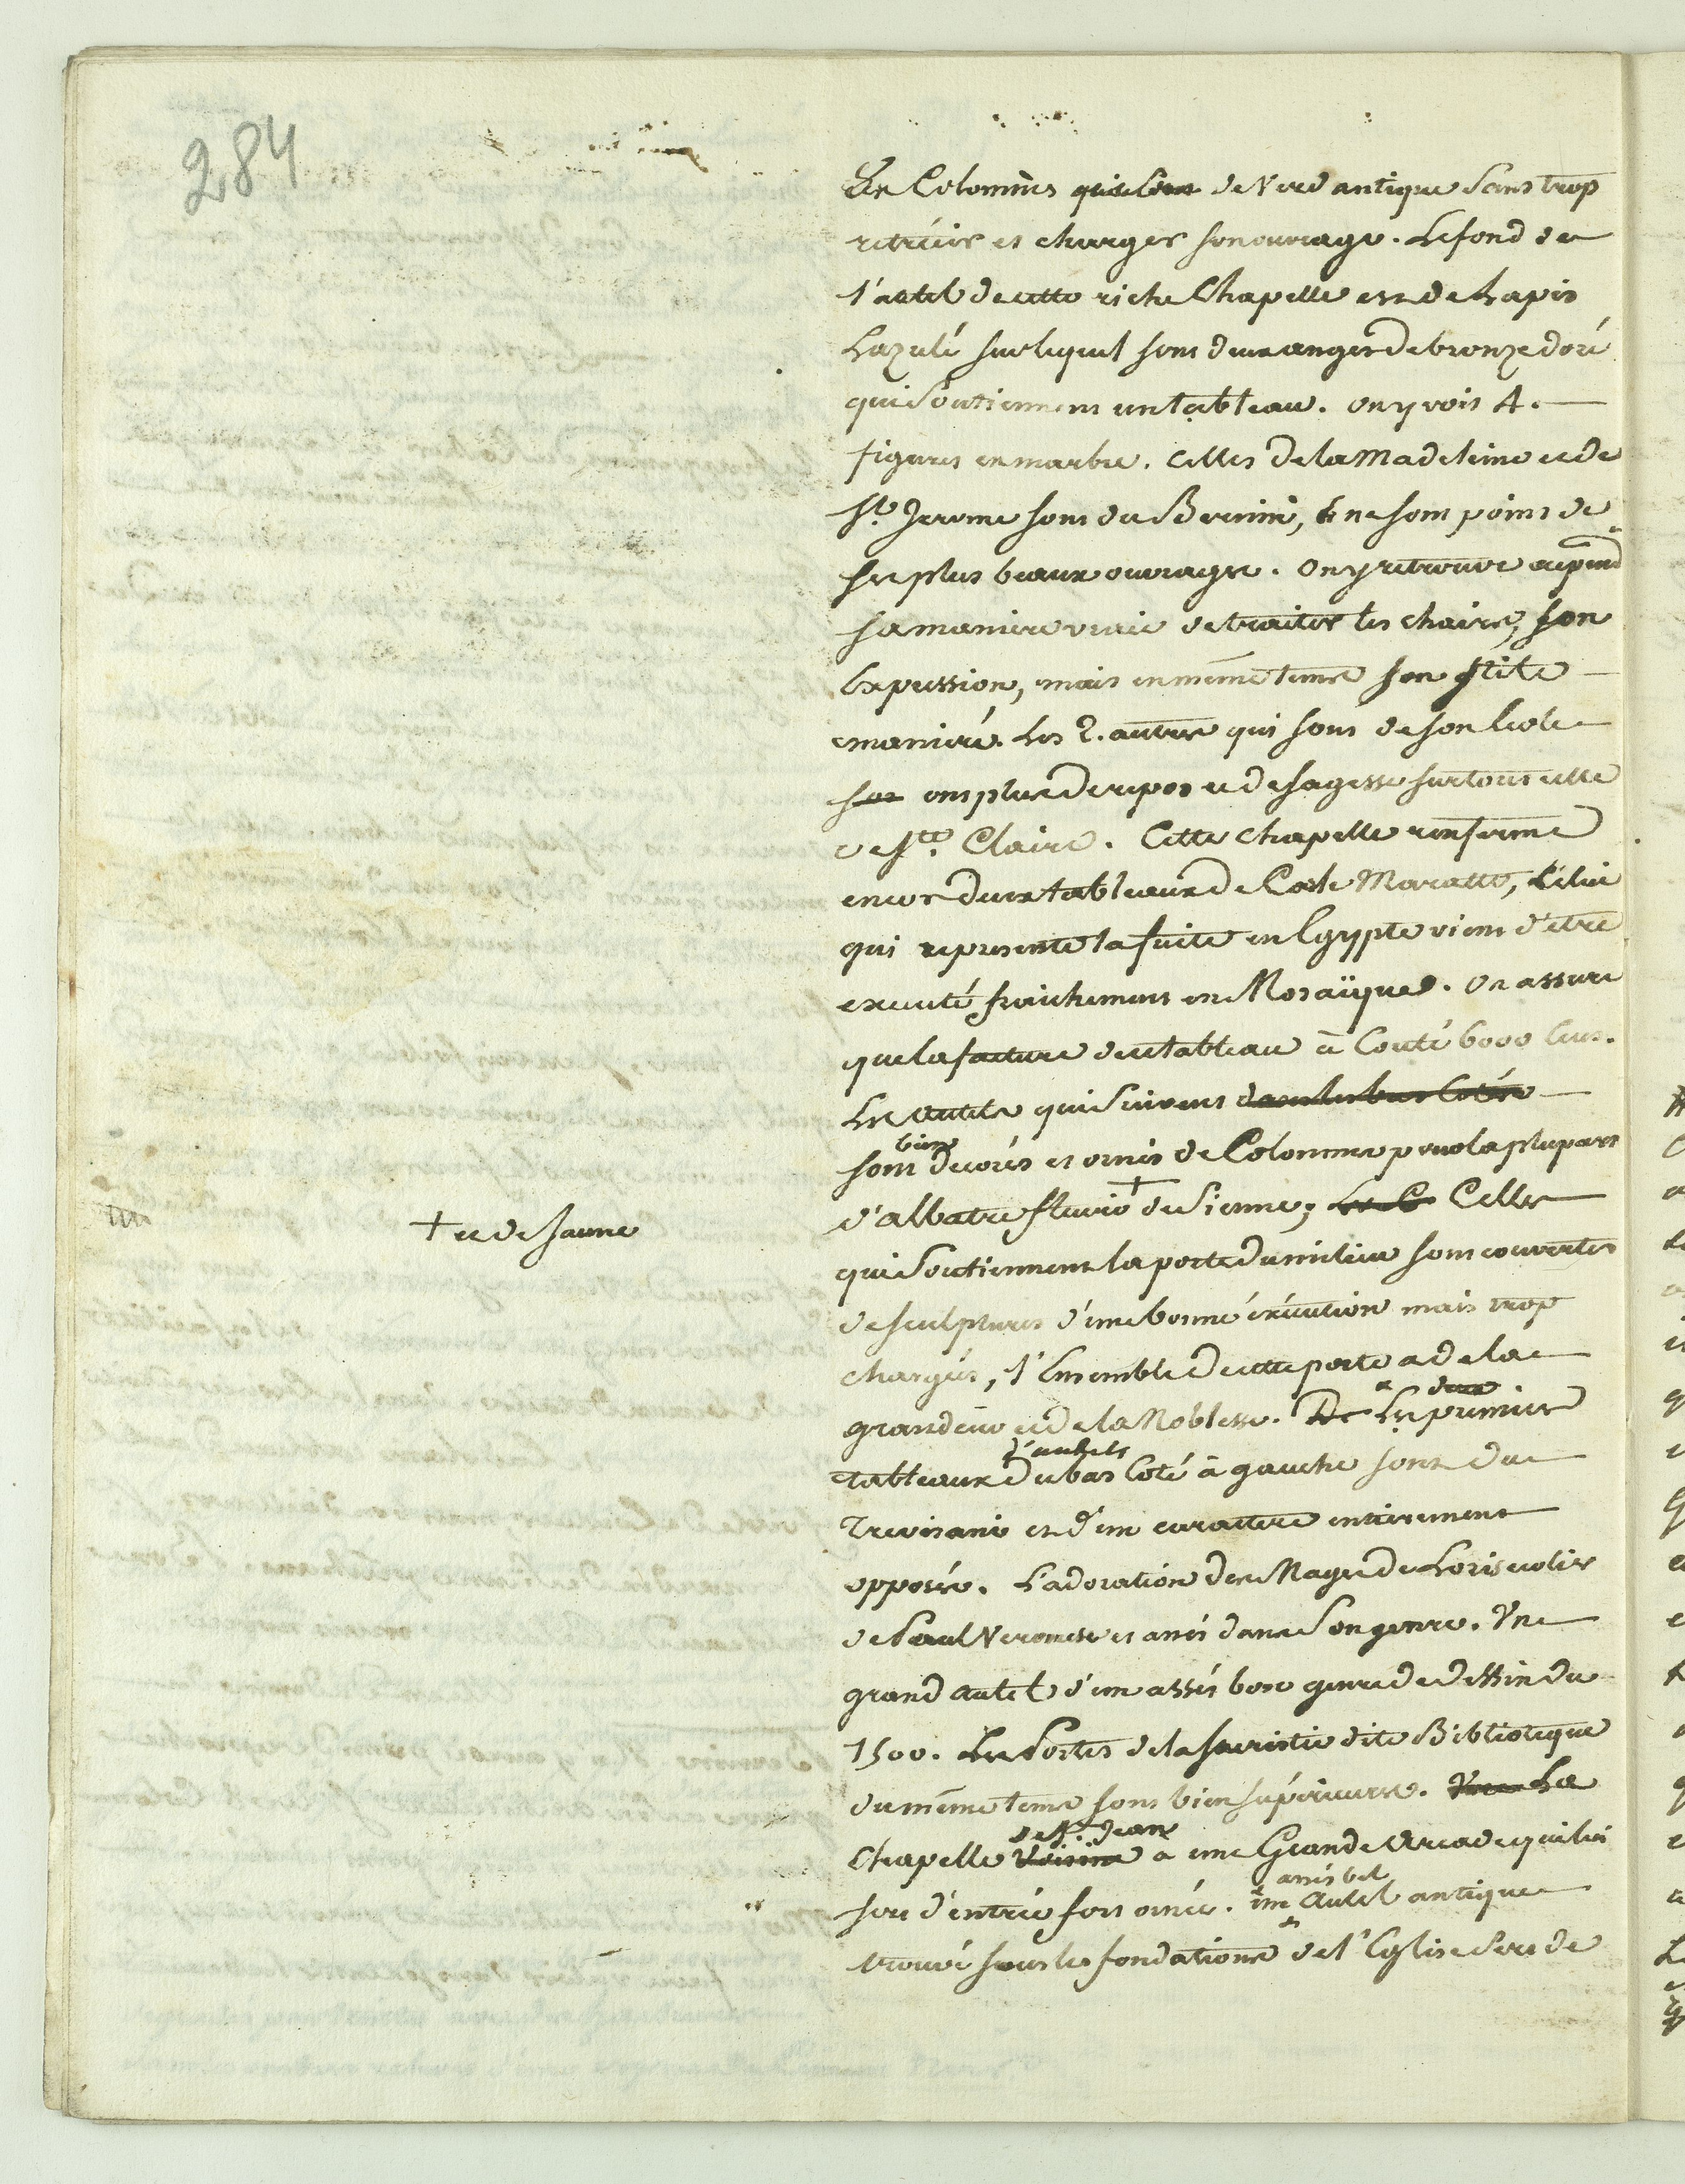 284
Les Colomnes qui sont de Verd antique sans trop
retrécir et charger son ouvrage. Le fond de
l'autel de cette riche Chapelle est de Lapis
Lazulé sur lequel sont deux anges de bronze doré
qui Soutiennent un tableau. on y vois 4.
figures en marbre. Celles de la Madeleine et de
St. Jerome sont du Bernin, & ne sont point de
ses plus beaux ouvrages. On y retrouve cepend
sa maniere vraie de traiter les chairs, son
Expression, mais en même tems son stile
maniéré. Les 2. autres qui sont de son Ecole
son ont plus de repos et de sagesse surtout celle
de Ste. Claire. Cette chapelle renferme
encor deux tableaux de Carle Maratte, Celui
qui represente la fuite en Egypte vient d'etre
executé fraichement en Mosaïque. On assure
que la facture de ce tableau à Couté 6000 Ecus.
Les autels qui Suivent dans les bas Cotés
bien
sont decorés et ornés de Colonnes pour la plupart
d'albatre fleurio + de Sienne; Les C Celles
+ et de Jaune
qui Soutiennent la porte du milieu sont couvertes
de sculptures d'une bonne éxécution mais trop
chargés, l'Ensemble de cette porte a de la
deux
grandeur et de la Noblesse. De Les premiers
d'autels
tableaux du bas Coté à gauche sont du
Trevisani et d'un caractere entierement
opposés. L'adoration des Mages de Loris ecolier
de Paul Veronese et assés dans Son genre. Une
grand autel d'un assés bon genre de dessin du
1500. Les Portes de la sacristie dite Biblioteque
du même tems sont bien supérieures. Une La
de St. Jean
Chapelle Voisine a une Grande Arcade qui lui
assés bel
sert d'entrée fort ornée. un Autel antique
trouvé sous les fondations de l'Eglise Sert de